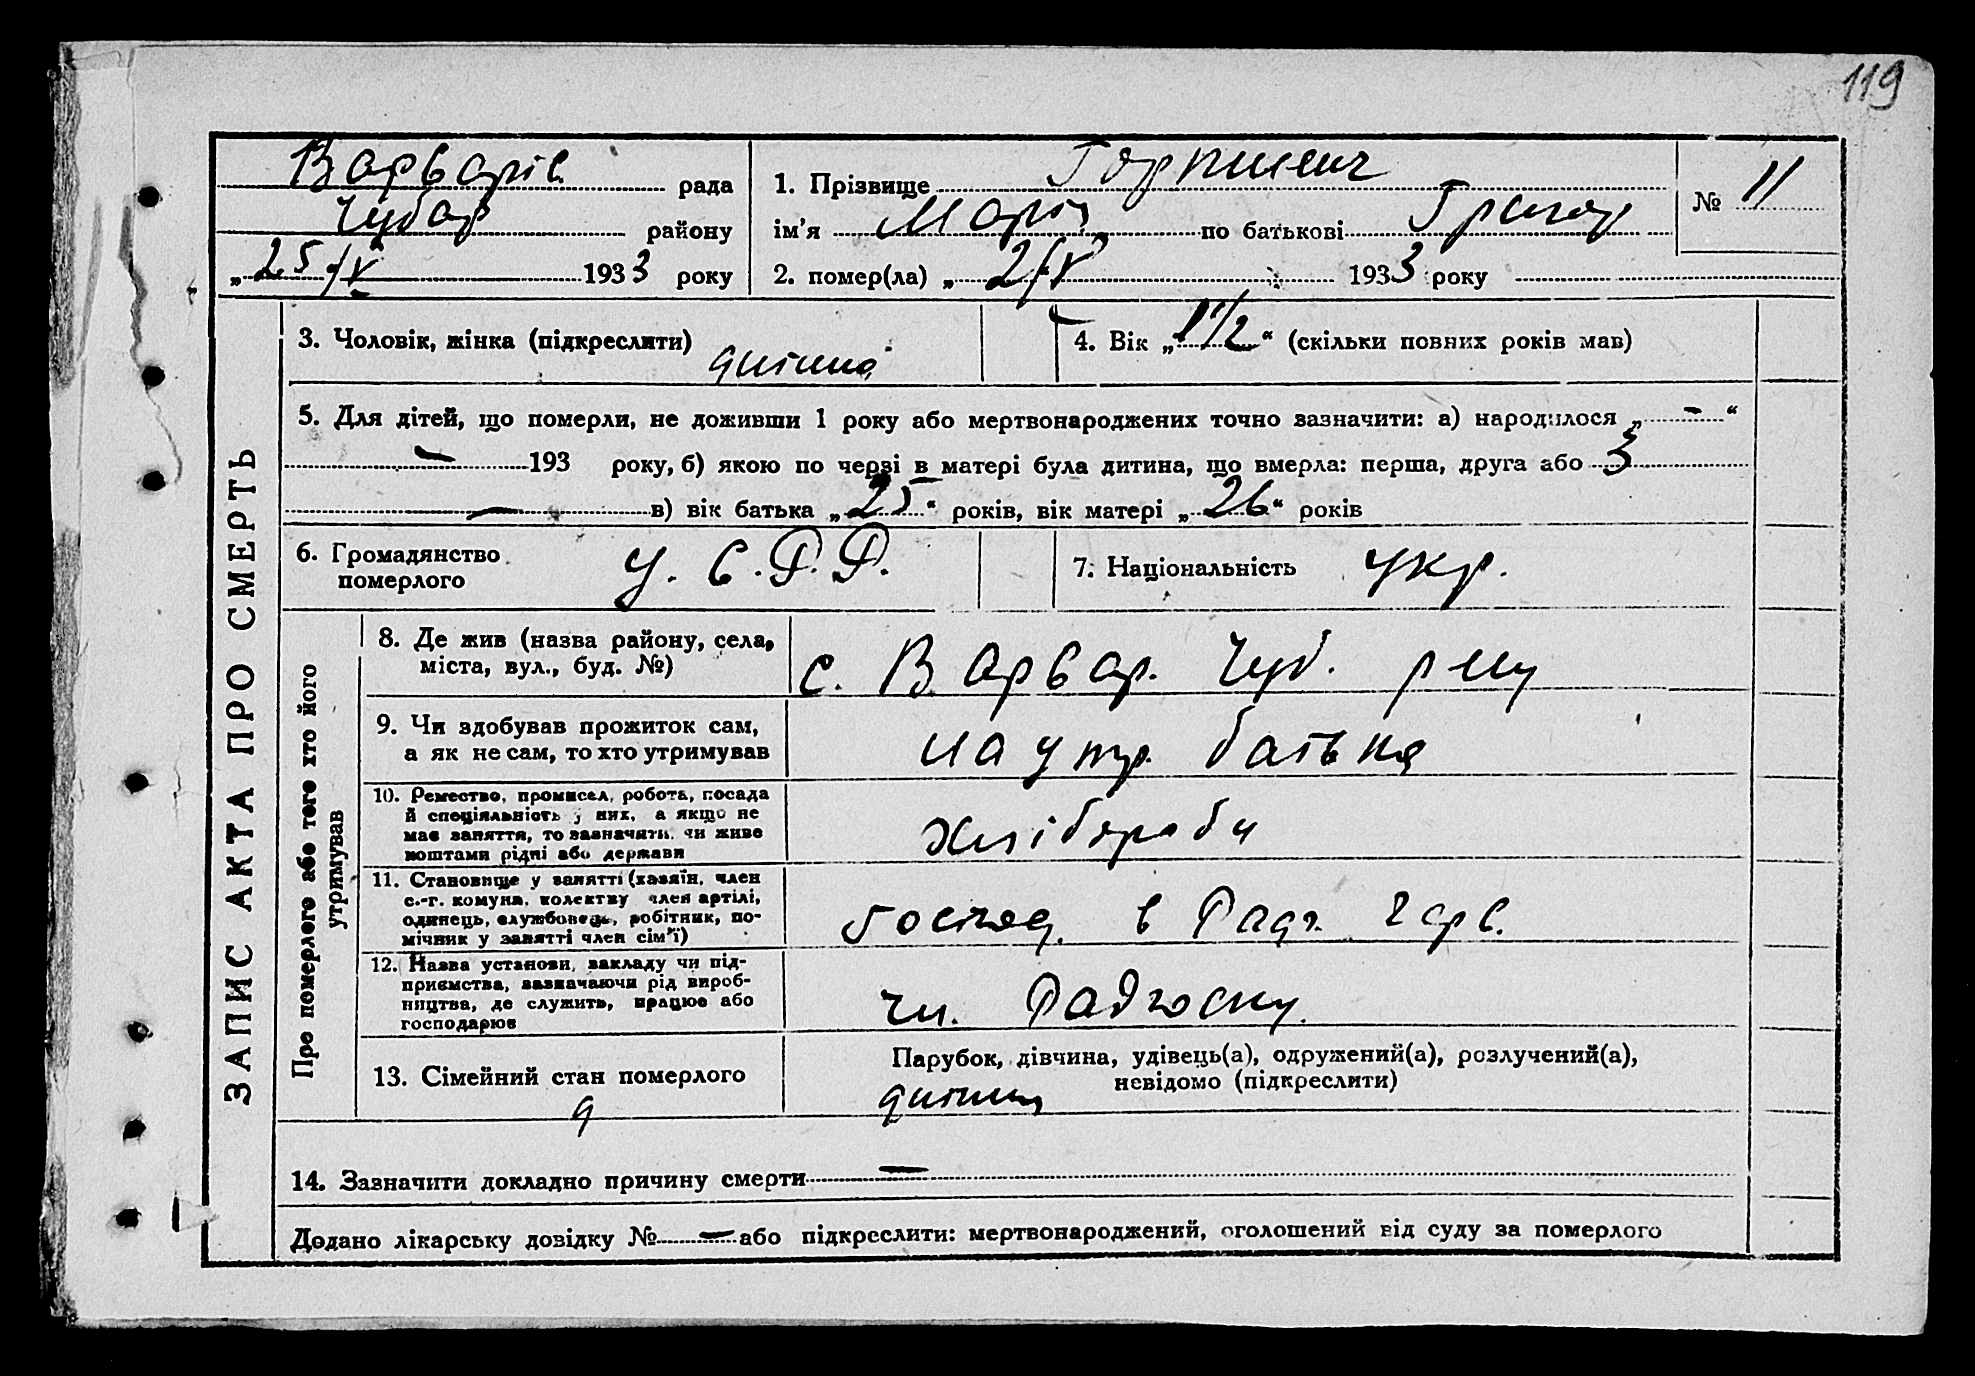 119
Варварів. рада
Чубар району
„25/V 1933 року
1. Прізвище
ім'я Марія по батькові Григор
2. помер(ла) „2/V 1933 року
№ 11
ЗАПИС АКТА ПРО СМЕРТЬ
3. Чоловік, жінка (підкреслити) дитина
4. Вік „1 1/2“ (скільки повних років мав)
5. Для дітей, що померли, не доживши 1 року або мертвонароджених точно зазначити: а) народилося „ - “
— 193 року, б) якою по черзі в матері була дитина, що вмерла: перша, друга або 3
— в) вік батька „25“ років, вік матері „26“ років
6. Громадянство
померлого
У.С.Р.Р.
7. Національність укр.
Про померлого або того хто його
утримував
8. Де жив (назва району, села,
міста, вул., буд. №)
с. Варвар. Чуб. р-ну
9. Чи здобував прожиток сам,
а як не сам, то хто утримував
на утр. батька
10. Ремество, промисел, робота, посада
й спеціяльність у них, а якщо не
має заняття, то зазначити, чи живе
коштами рідні або держави
хлібороби
11. Становище у занятті (хазяїн, член
с.-г. комуни, колективу член артілі,
одинець, службовець, робітник, по-
мічник у занятті член сім'ї)
в Радг. Черв.
12. Назва установи, закладу чи під-
приємства, зазначаючи рід вироб-
ництва, де служить, працює або
господарює
чл. Радгоспу.
13. Сімейний стан померлого
Парубок, дівчина, удівець(а), одружений(а), розлучений(а),
невідомо (підкреслити)
дитина
14. Зазначити докладно причину смерти —
Додано лікарську довідку № — або підкреслити: мертвонароджений, оголошений від суду за померлого